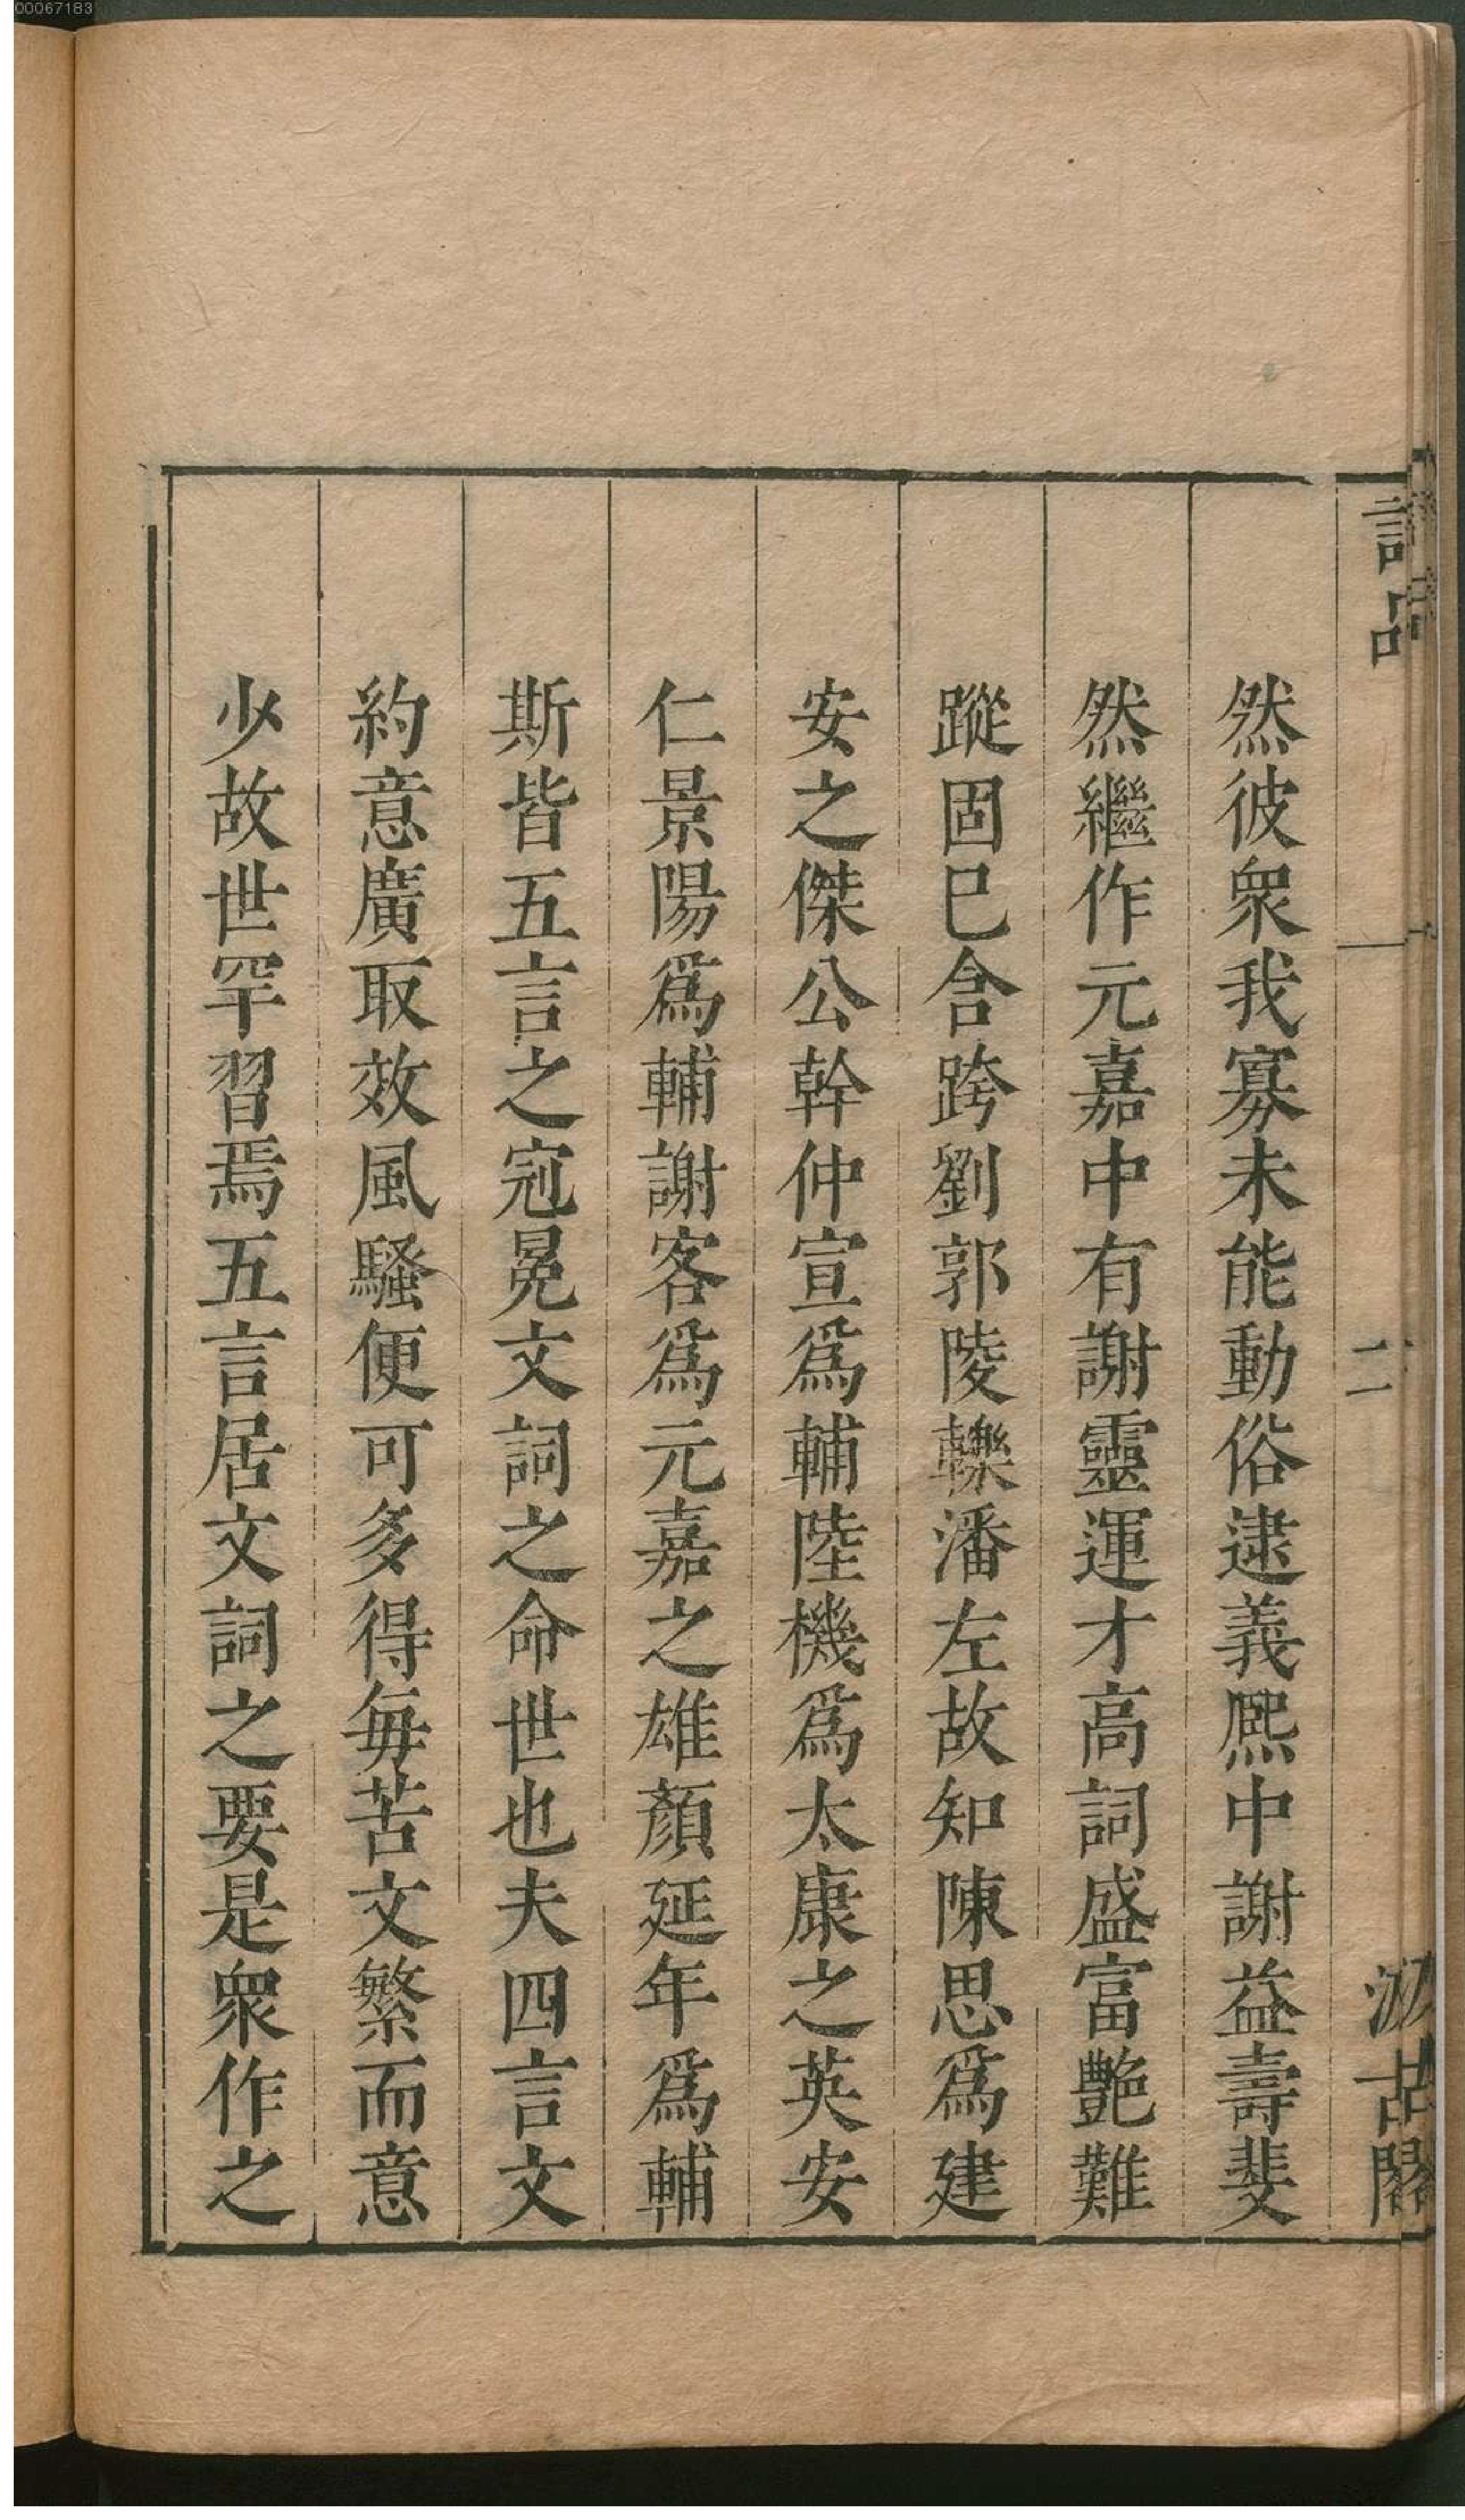 00067183
詩品
二
汲古閣
然彼衆我寡未能動俗逮義熈中謝益壽斐
然繼作元嘉中有謝靈運才高詞盛富艶難
蹤固巳含跨劉郭陵轢潘左故知陳思爲建
安之傑公幹仲宣爲輔陸機爲太康之英安
仁景陽爲輔謝客爲元嘉之雄顏延年爲輔
斯皆五言之冠冕文詞之命世也夫四言文
約意廣取效風騷便可多得每苦文繁而意
少故世罕習焉五言居文詞之要是衆作之